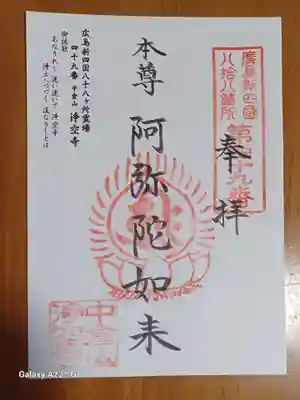 廣島新四國
八拾八箇所
第四十九番
奉拝
本尊 阿弥陀如来
広島新四国八十八ヶ所霊場
四十九番 中倉山 浄空寺
御詠歌
浄土へつづく 道なりしとは
Galaxy A22 5G